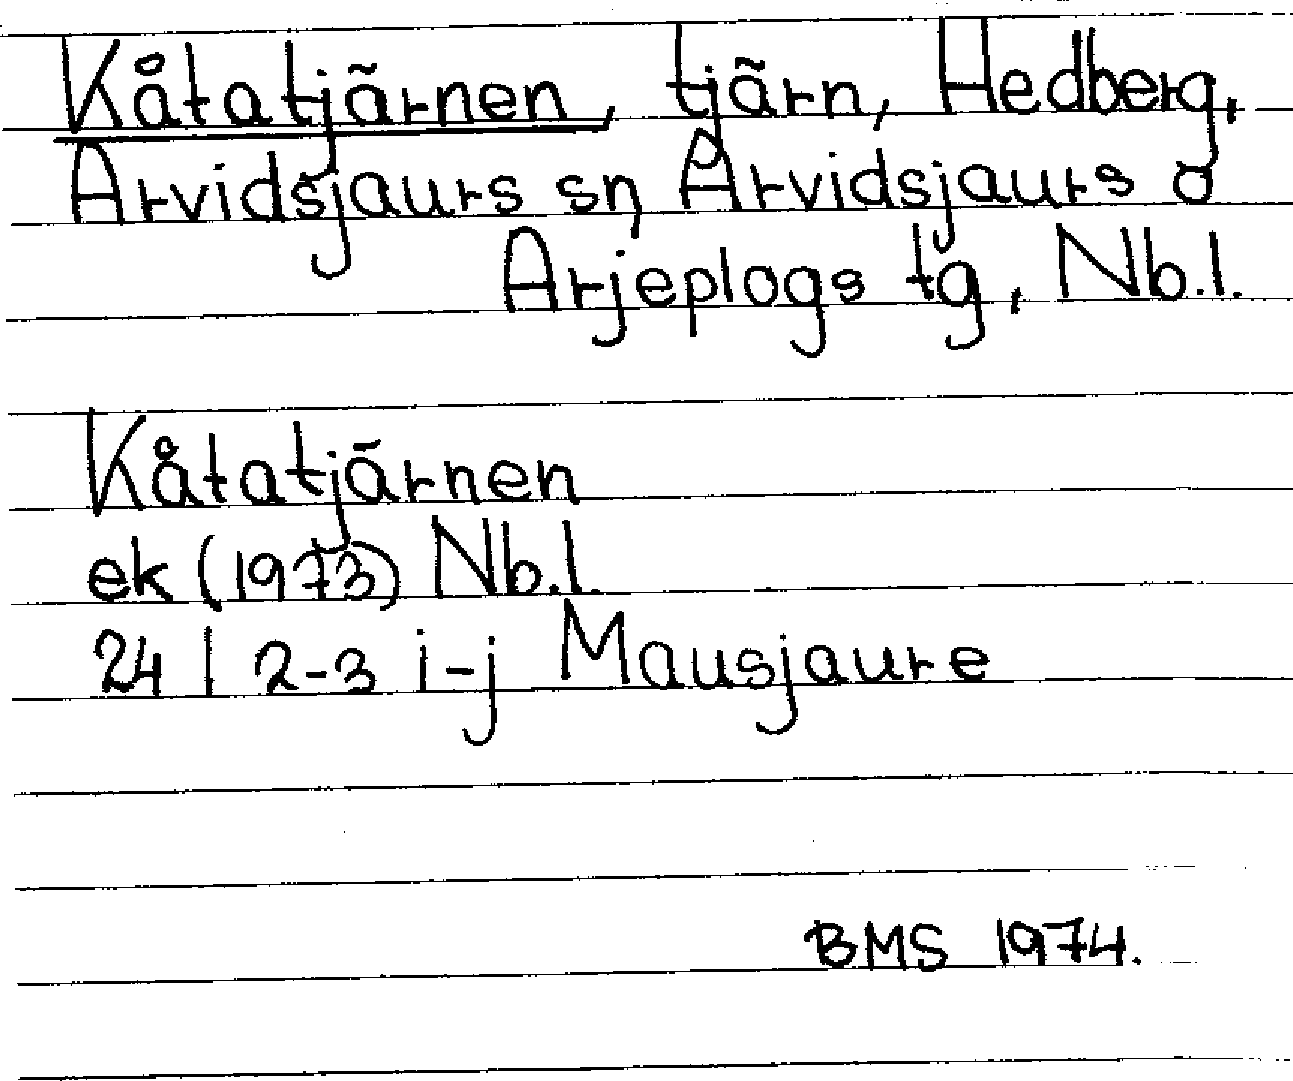 Kåtatjärnen, tjärn, Hedberg,
Arvidsjaurs sn, Arvidsjaurs o
Arjeplogs tg, Nb.l.
Kåtatjärnen
ek (1973) Nb.l.
24 I 2-3 i-j Mausjaure
BMS 1974.